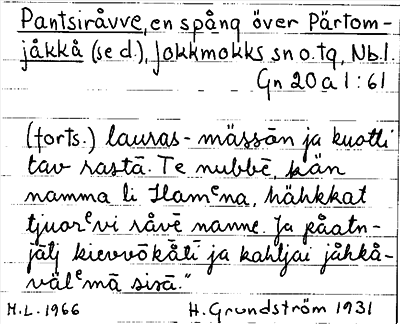 Pantsiråvve, en spång över Pärtom-
jåkkå (se d.), Jokkmokks sn o. tg, Nb. l.
Gn 20 a 1 : 61
(forts.) lauras-mässān ja kuotti
tav rastā. Te nubbē, kän
namma li Ilamᵉna, hähkkat
tjuorᵉvi råvē nanne. Ja påatn-
jålj kievvōkåtī ja kahtjai jåhkå-
välᵉmā sisā."
H.L. 1966 H. Grundström 1931